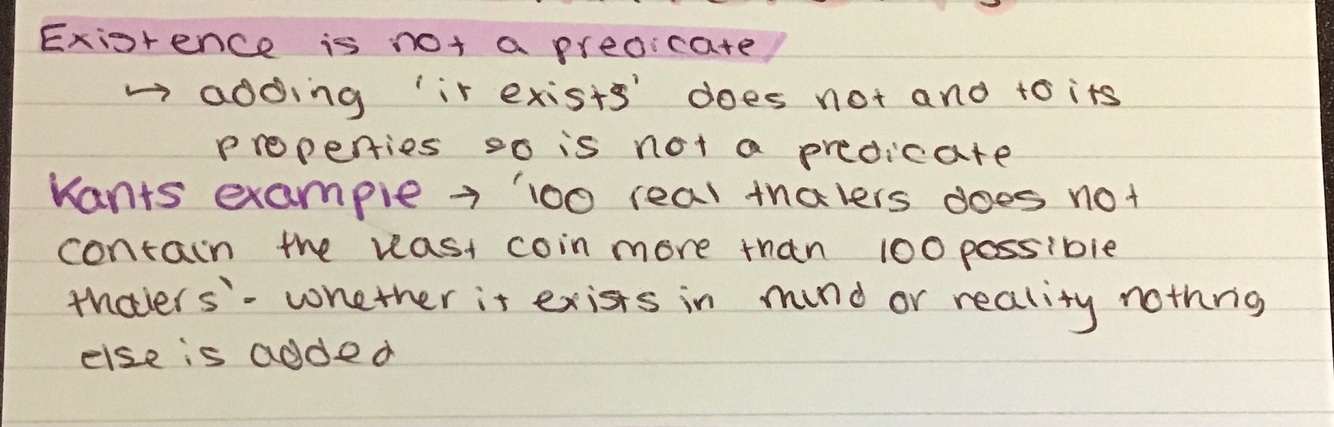 Existence is not a predicate
↳ adding 'it exists' does not and to its
properties so is not a predicate
Kants example → '100 real thalers does not
contain the least coin more than 100 possible
thalers' - whether it exists in mind or reality nothing
else is added